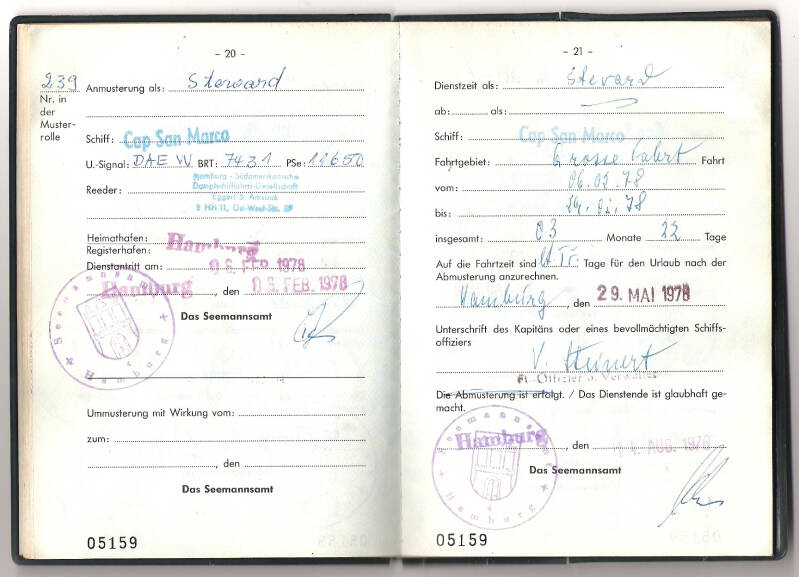 - 20 -
239 Anmusterung als: Steward
Nr. in
der
Muster-
rolle
Schiff: Cap San Marco
U.-Signal: DAEW BRT: 7431 PSe: 11650
Hamburg - Südamerikanische
Dampfschifffahrts-Gesellschaft
Eggert & Amsinck
2 HH 11, Ost-West-Str.
Reeder:
Heimathafen:
Registerhafen: Hamburg
Dienstantritt am: 06. FEB. 1978
Hamburg, den 06. FEB. 1978
Das Seemannsamt
Seemannsamt Hamburg
4
Ummusterung mit Wirkung vom:
zum:
, den
Das Seemannsamt
05159
- 21 -
Dienstzeit als: Steward
ab: als:
Schiff: Cap San Marco
Fahrtgebiet: Grosse Fahrt Fahrt
vom: 06.02.78
bis:
insgesamt: 03 Monate 22 Tage
Auf die Fahrtzeit sind Tage für den Urlaub nach der
Abmusterung anzurechnen.
Hamburg, den 29. MAI 1978
Unterschrift des Kapitäns oder eines bevollmächtigten Schiffs-
offiziers
V. Steinert
Fk.-Offizier u. Verwalter
Die Abmusterung ist erfolgt. / Das Dienstende ist glaubhaft ge-
macht.
Hamburg, den AUG. 1978
Das Seemannsamt
Seemannsamt Hamburg
4
05159